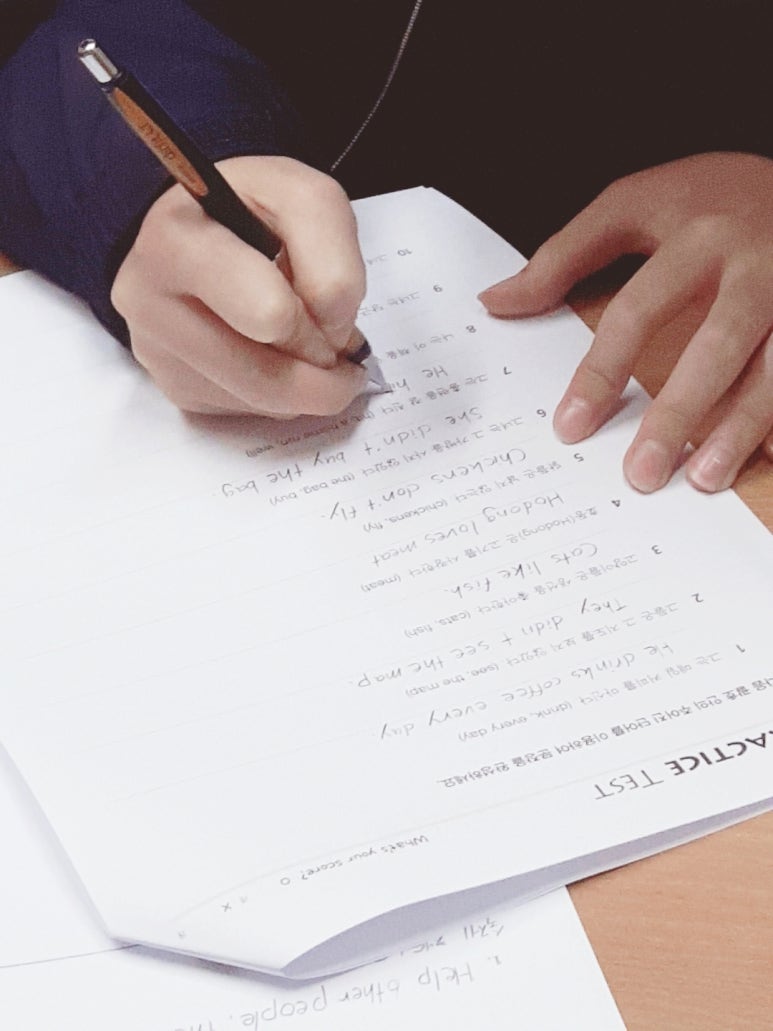 What's your score? O 개 X 개
PRACTICE TEST
다음 괄호 안의 주어진 단어를 이용하여 문장을 완성하세요.
1 그는 매일 커피를 마신다 (drink, every day)
He drinks coffee every day.
2 그들은 그 지도를 보지 않았다 (see, the map)
They didn't see the map.
3 고양이들은 생선을 좋아한다 (cats, fish)
Cats like fish.
4 호동(Hodong)은 고기를 사랑한다 (meat)
Hodong loves meat
5 닭들은 날지 않는다 (chickens, fly)
Chickens don't fly.
6 그녀는 그 가방을 사지 않았다 (the bag, buy)
She didn't buy the bag.
7 그는 홈런을 잘 친다 (hit, a home run, well)
He hi
8 나는 이 책을
9 그녀는 당근
10 그녀
숙제
1. Help other people.